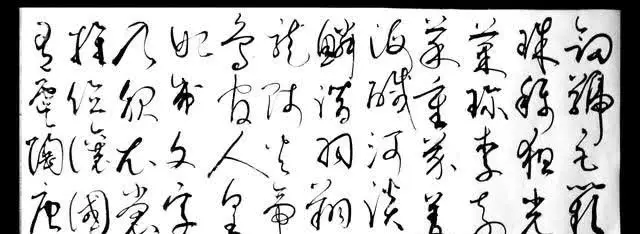 劍號巨闕
珠稱夜光
菓珍李柰
菜重芥薑
海鹹河淡
鱗潛羽翔
龍師火帝
鳥官人皇
始制文字
乃服衣裳
推位讓國
有虞陶唐